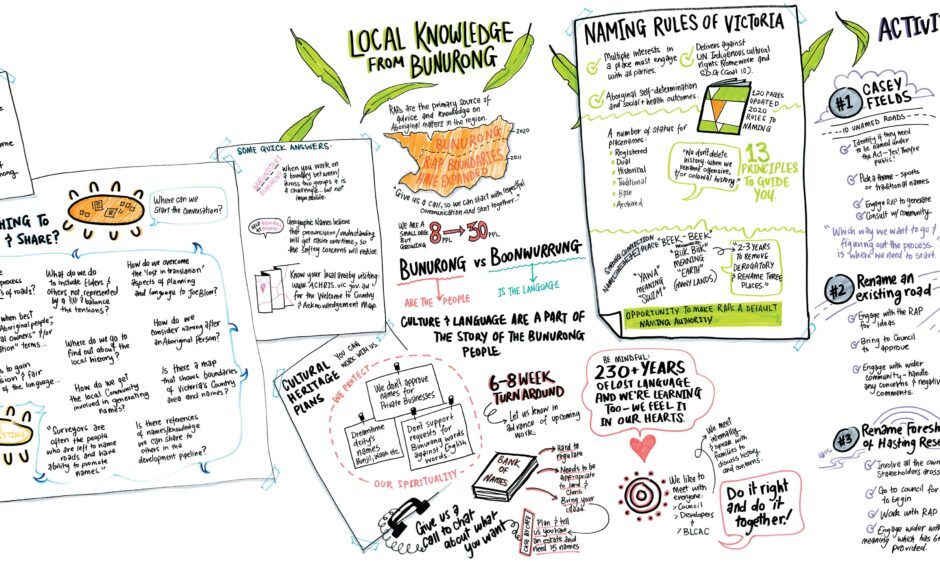 mong.
Where can we
start the conversation?
HING TO
& SHARE?
process
s of roads?
What do we do
to include Elders &
others not represented
by a RAP & balance
the tensions?
How do we overcome
the 'lost in translation'
aspects of planning
and language to Joe Blom?
when best
Aboriginal people",
&/or
terms...
Where do we go to
find out about the
local history?
How do we
consider naming after
an Aboriginal Person?
to gain
& fair
of the language...
How do we get
the local Community
involved in generating
names?
Is there a map
that shows boundaries
of Victoria's Country
area and names?
"Surveyors are
often the people
who are left to name
roads and have
ability to promote
names."
Is there references
of names/knowledge
we can share to
others in the
development pipeline?
SOME QUICK ANSWERS:
When you work on
a boundary between/
across two groups it is
a challenge... but not
impossible.
Geographic Names believe
that pronunciation/understanding
will get easier overtime, so
the safety concerns will reduce.
Know your local area by visiting:
www.ACHRIS.vic.gov.au
for the Welcome to Country
& Acknowledgement Map.
LOCAL KNOWLEDGE
FROM BUNURONG
RAPs are the primary source of
advice and knowledge on
Aboriginal matters in the region.
2020
BUNURONG
RAP BOUNDARIES
HAVE EXPANDED
2011
"Give us a call, so we can start with respectful
communication and start together..."
WE ARE A
SMALL ORG
BUT
GROWING
8 PPL → 30 PPL.
BUNURONG vs BOONWURRUNG
ARE THE PEOPLE
IS THE LANGUAGE
CULTURE & LANGUAGE ARE A PART OF
THE STORY OF THE BUNURONG
PEOPLE.
CULTURAL
HERITAGE
PLANS
YOU CAN
WORK WITH US
WE PROTECT
We don't approve
names for
Private Businesses
Dreamtime
deity's
names
Bunjil, Waah etc.
Dont support
requests for
Bunurong words
against English
words
OUR SPIRITUALITY
Give us a
call to chat
about what
you want
6-8 WEEK
TURN AROUND
Let us know in
advance of upcoming
work.
BANK OF
NAMES
Hard to
regulate
Needs to be
appropriate
to land &
Clans
Bring your
ideas
CASE BY CASE
Plan & tell
us you have
an estate and
need 15 names
BE MINDFUL:
230+ YEARS
OF LOST LANGUAGE
AND WE'RE LEARNING
TOO – WE FEEL IT
IN OUR HEARTS.
We meet
internally &
speak with
families to
discuss history
and concerns.
We like to
meet with
everyone:
> Council
> Developers &
> BLCAC
Do it right
and do it
together!
NAMING RULES OF VICTORIA
Multiple interests in
a place must engage
with all parties.
Delivers against
UN. Indigenous cultural
rights Framework and
S.D.G (Goal 10).
Aboriginal self-determination
and social & health outcomes.
120 PAGES
UPDATED
2020
RULES TO
NAMING
A number of status for
placenames:
Registered
Dual
Historical
Traditional
Base
Archived
"We don't delete
history when we
rename offensive,
&/or colonial history."
13
PRINCIPLES
TO GUIDE
YOU.
"YANA"
MEANING
"SWIM"
"BEEK-BEEK"
"BIIK BIIK"
MEANING
"EARTH"
(MANY LANDS)
"2-3 YEARS
TO REMOVE
DEROGATORY
& RENAME THREE
PLACES."
OPPORTUNITY TO MAKE RAPs A DEFAULT
NAMING AUTHORITY...
ACTIVI
#1 CASEY
FIELDS
10 UNAMED ROADS
Identify if they need
to be named under
the Act – Yes! They're
public!
Pick a theme – sports
or traditional names
Engage RAP to generate
Consult w/ community.
"Which way we want to go &
figuring out the process
is where we need to start.
#2 Rename an
existing road
Engage with the RAP
for ideas
Bring to Council
to approve
Engage with wider
community – handle
any concerns & negative
comments.
#3 Rename Foresh
of Hasting Rese
Involve all the own
stakeholders across
Go to council for
to begin
Work with RAP
Engage wider with
meaning which has be
provided.